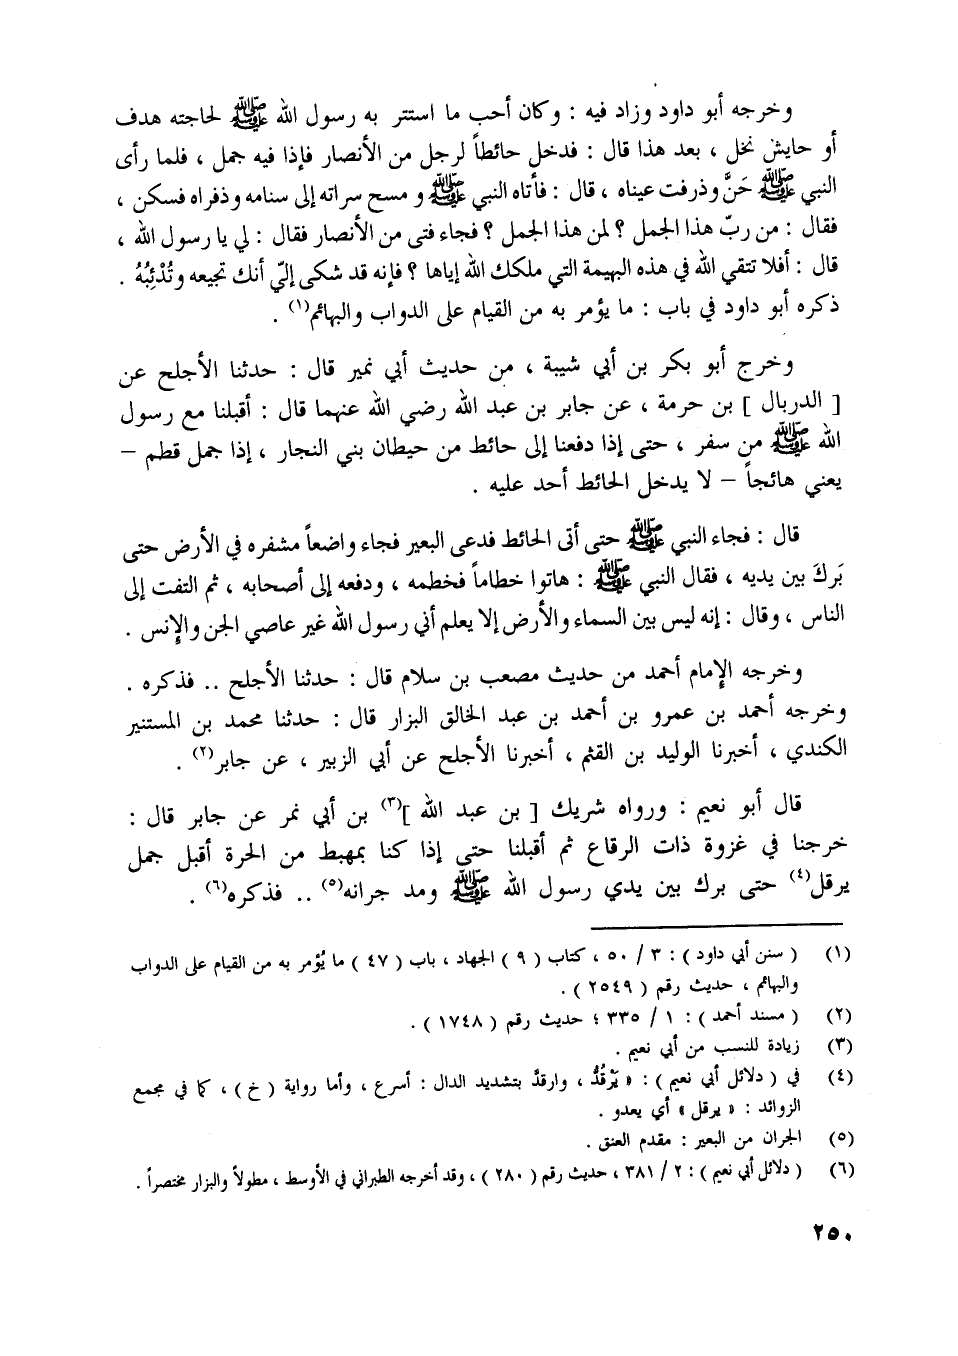 وخرجه أبو داود وزاد فيه : وكان أحب ما استتر به رسول الله ﷺ لحاجته هدف
أو حايش نخل ، بعد هذا قال : فدخل حائطاً لرجل من الأنصار فإذا فيه جمل ، فلما رأى
النبي ﷺ حَنَّ وذرفت عيناه ، قال : فأتاه النبي ﷺ و مسح سراته إلى سنامه وذفراه فسكن ،
فقال : من ربّ هذا الجمل ؟ لمن هذا الجمل ؟ فجاء فتى من الأنصار فقال : لي يا رسول الله ،
قال : أفلا تتقي الله في هذه البهيمة التي ملكك الله إياها ؟ فإنه قد شكى إليّ أنك تجيعه وتُدْئِبُهُ .
ذكره أبو داود في باب : ما يؤمر به من القيام على الدواب والبهائم(١) .
وخرج أبو بكر بن أبي شيبة ، من حديث أبي نمير قال : حدثنا الأجلح عن
[ الدربال ] بن حرمة ، عن جابر بن عبد الله رضي الله عنهما قال : أقبلنا مع رسول
الله ﷺ من سفر ، حتى إذا دفعنا إلى حائط من حيطان بني النجار ، إذا جمل قطم –
يعني هائجاً – لا يدخل الحائط أحد عليه .
قال : فجاء النبي ﷺ حتى أتى الحائط فدعى البعير فجاء واضعاً مشفره في الأرض حتى
بَركَ بين يديه ، فقال النبي ﷺ : هاتوا خطاماً فخطمه ، ودفعه إلى أصحابه ، ثم التفت إلى
الناس ، وقال : إنه ليس بين السماء والأرض إلا يعلم أني رسول الله غير عاصي الجن والإنس .
وخرجه الإمام أحمد من حديث مصعب بن سلام قال : حدثنا الأجلح .. فذكره .
وخرجه أحمد بن عمرو بن أحمد بن عبد الخالق البزار قال : حدثنا محمد بن المستنير
الكندي ، أخبرنا الوليد بن القثم ، أخبرنا الأجلح عن أبي الزبير ، عن جابر(٢) .
قال أبو نعيم : ورواه شريك [ بن عبد الله ](٣) بن أبي نمر عن جابر قال :
خرجنا في غزوة ذات الرقاع ثم أقبلنا حتى إذا كنا بمهبط من الحرة أقبل جمل
يرقل(٤) حتى برك بين يدي رسول الله ﷺ ومد جرانه(٥) .. فذكره(٦) .
(١) ( سنن أبي داود ) : ٣ / ٥٠ ، كتاب ( ٩ ) الجهاد ، باب ( ٤٧ ) ما يُؤمر به من القيام على الدواب
والبهائم ، حديث رقم ( ٢٥٤٩ ) .
(٢) ( مسند أحمد ) : ١ / ٣٣٥ ؛ حديث رقم ( ١٧٤٨ ) .
(٣) زيادة للنسب من أبي نعيم .
(٤) في ( دلائل أبي نعيم ) : « يَرْقُدُّ ، وارقدَّ بتشديد الدال : أسرع ، وأما رواية ( خ ) ، كما في مجمع
الزوائد : « يرقل » أي يعدو .
(٥) الجران من البعير : مقدم العنق .
(٦) ( دلائل أبي نعيم ) : ٢ / ٣٨١ ، حديث رقم ( ٢٨٠ ) ، وقد أخرجه الطبراني في الأوسط ، مطولاً والبزار مختصراً .
٢٥٠